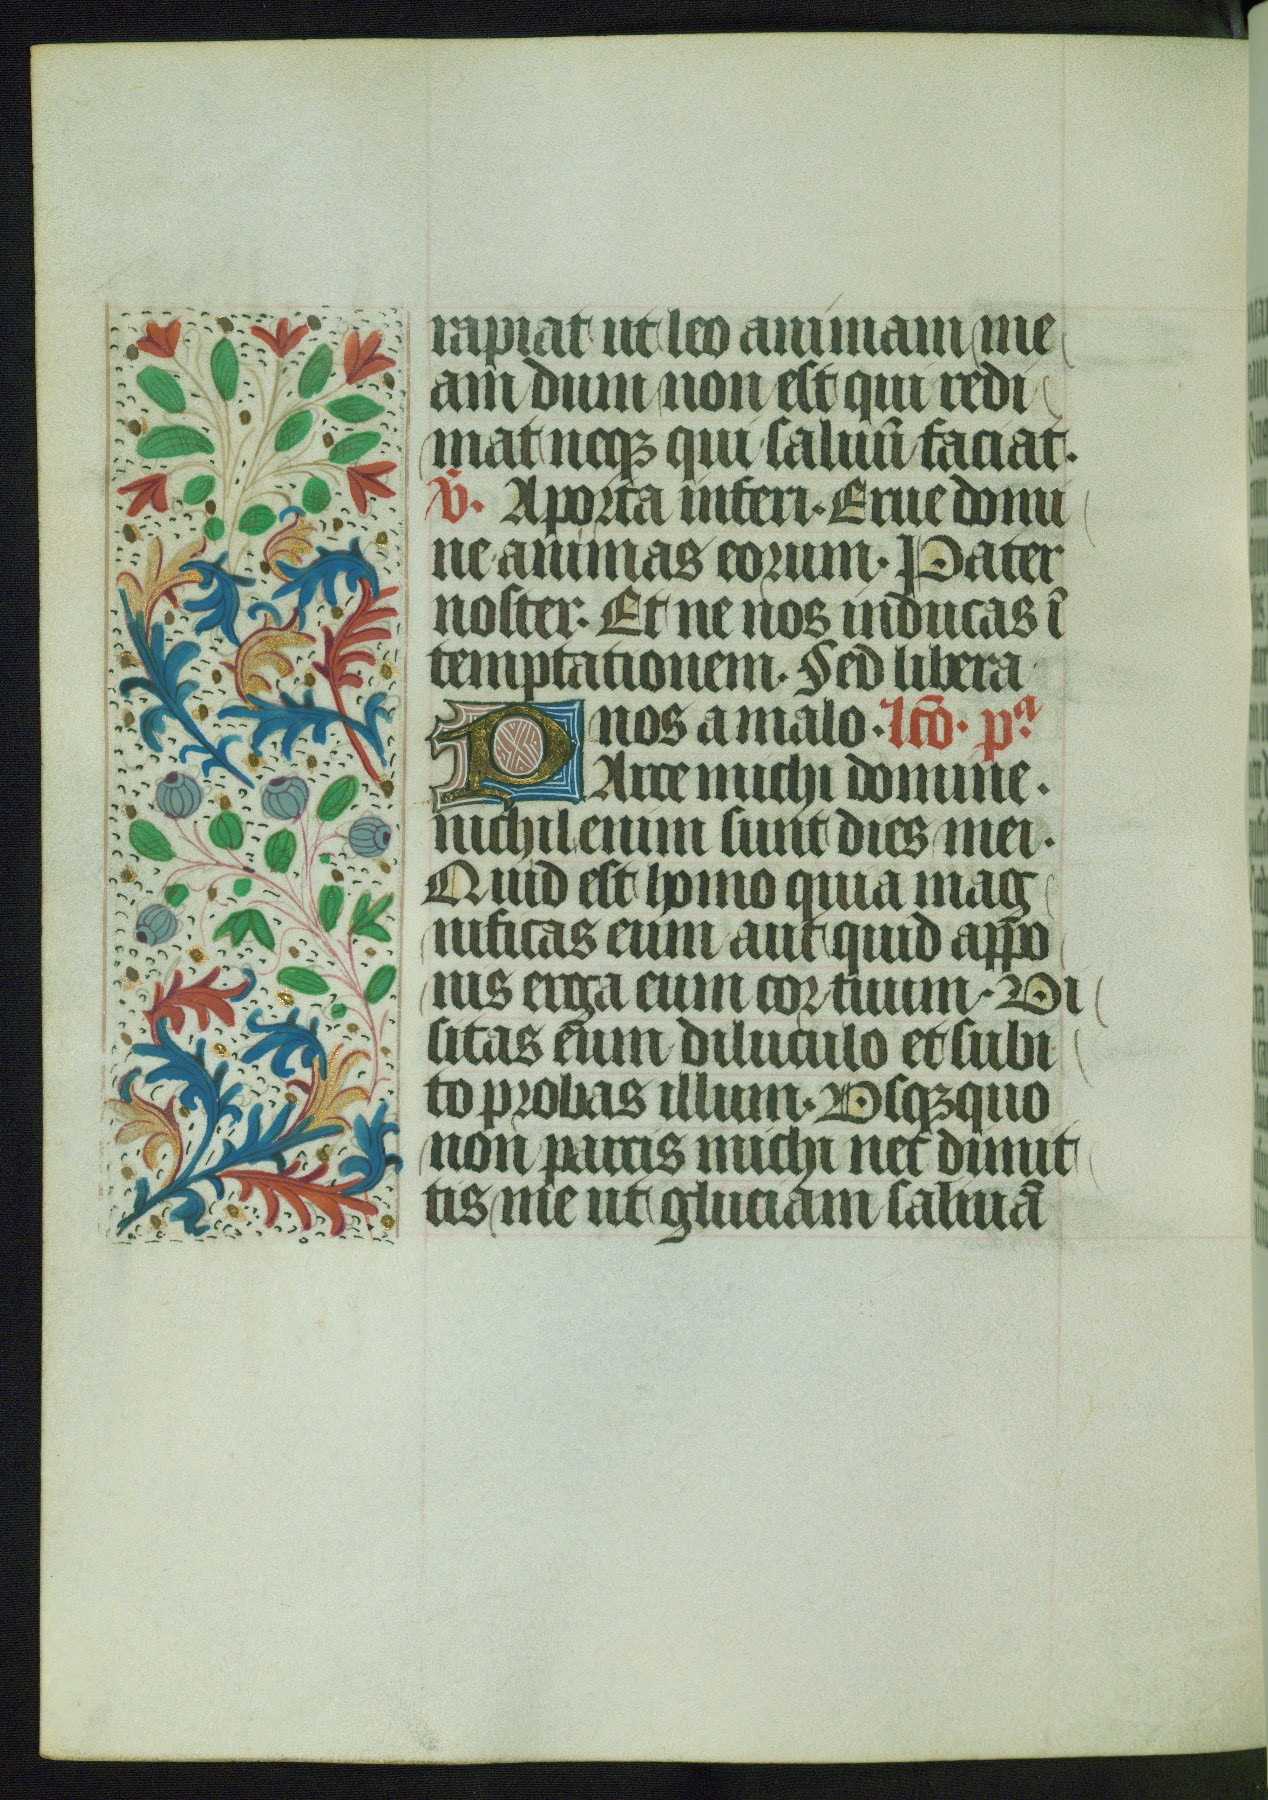 rapiat ut leo animam me
am dum non est qui redi
mat neqꝫ qui saluū faciat.
v̄. A porta inferi. Erue domi
ne animas eorum. Pater
noster. Et ne nos inducas ī
temptationem. Sed libera
nos a malo. lcō. pᵃ.
PArce michi domine.
nichil enim sunt dies mei.
Quid est homo quia mag
nificas eum aut quid appo
nis erga eum cor tuum. Vi
sitas eum diluculo et subi
to probas illum. Vsqꝫquo
non parcis michi nec dimit
tis me ut gluciam saliuā